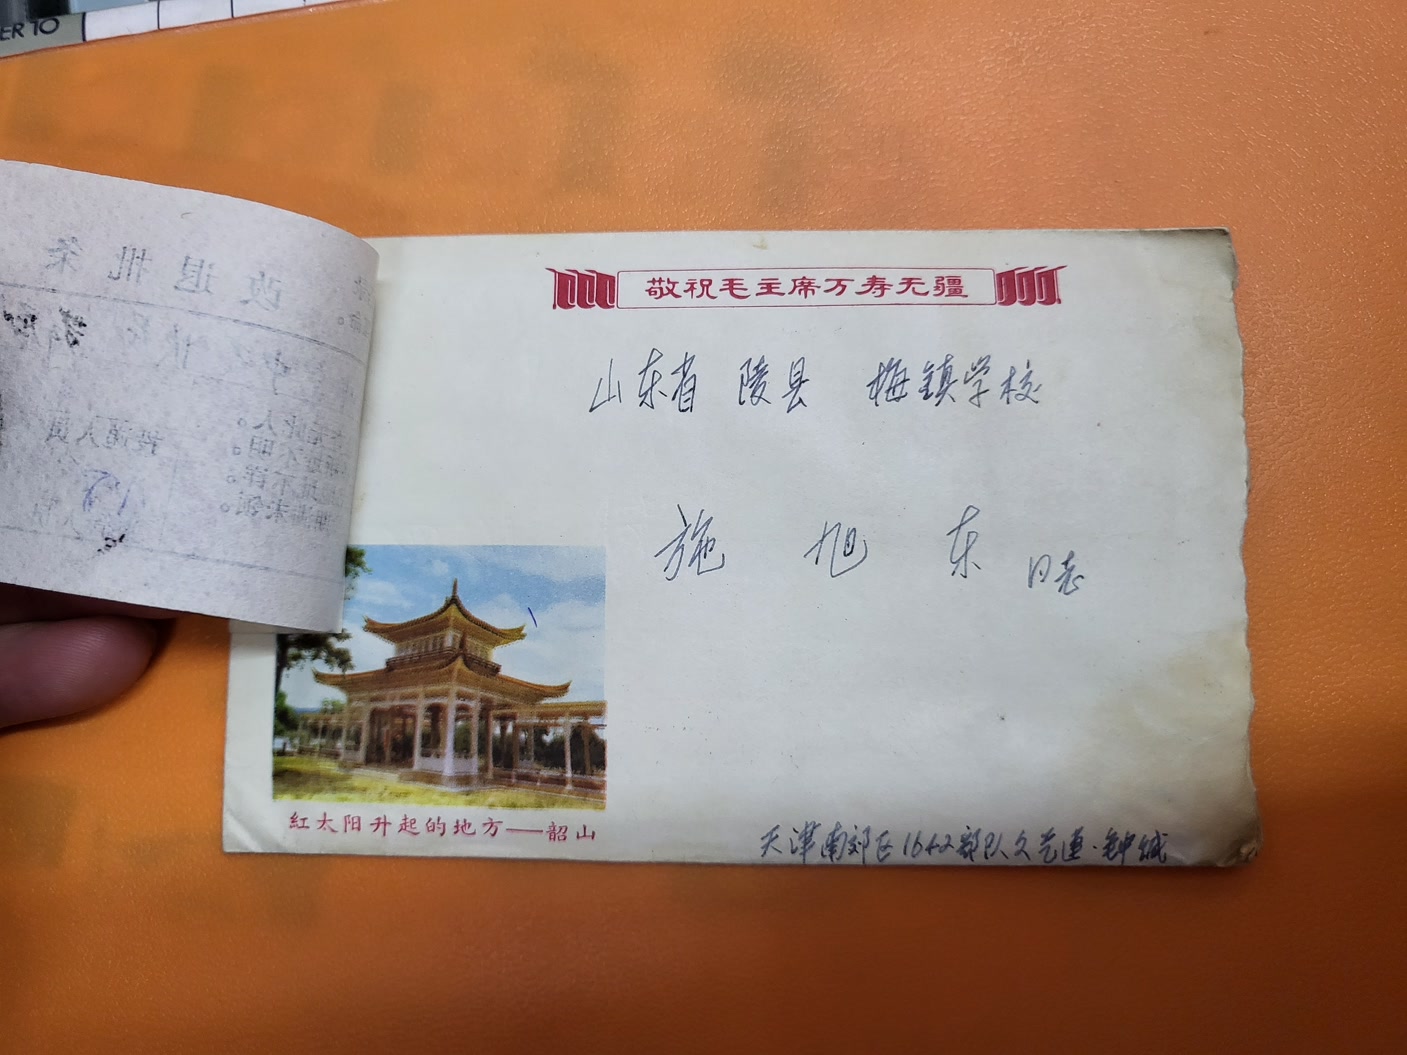 ER 10
改退批条
投递人员
敬祝毛主席万寿无疆
山东省 陵县 梅镇学校
施旭东 同志
紅太阳升起的地方——韶山
天津南郊区1642部队文艺连·钟城